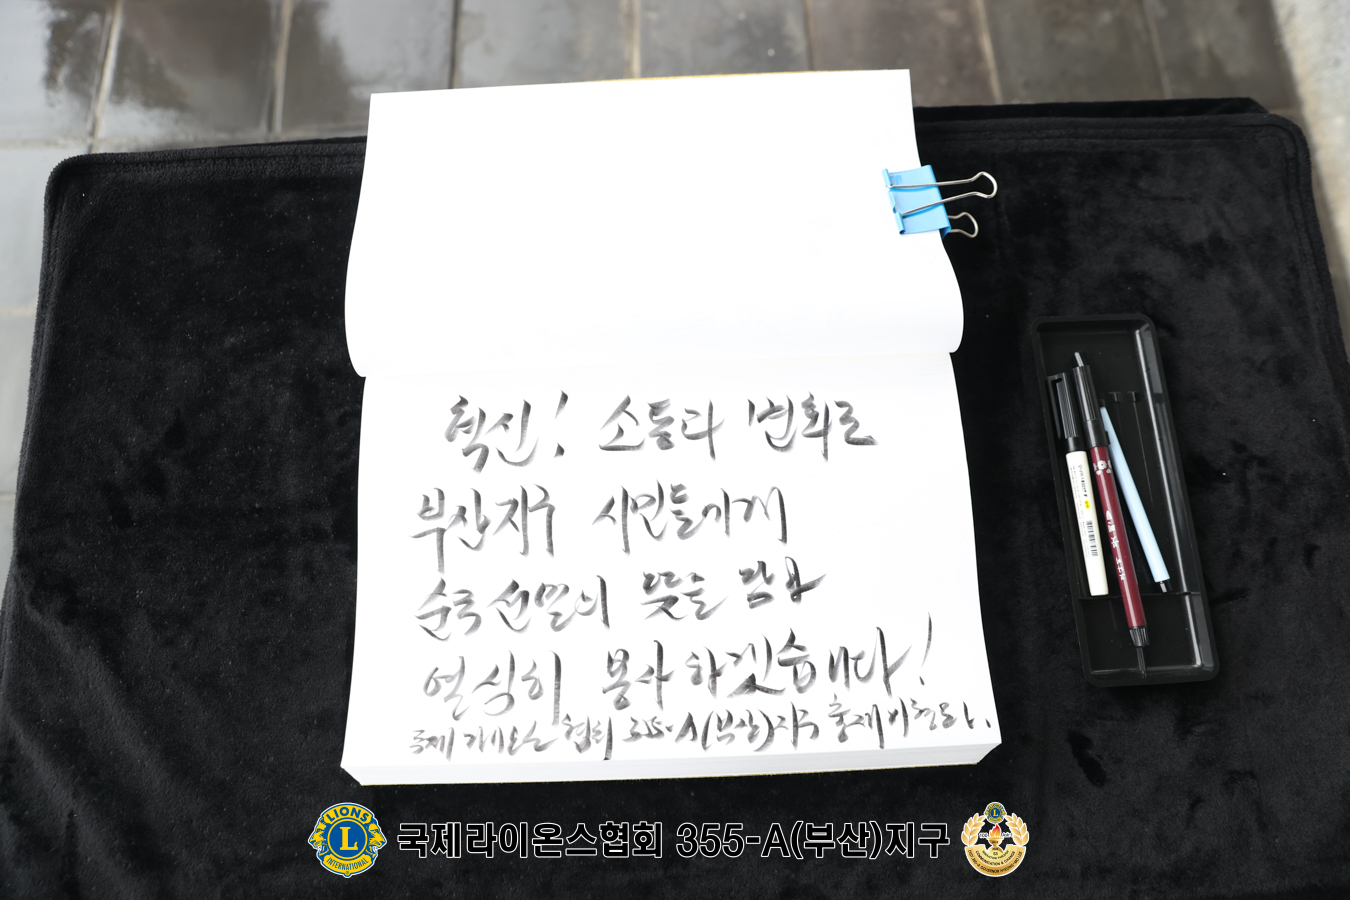 혁신! 소통과 변화로
부산지구 시민들에게
순국선열의 뜻을 담아
열심히 봉사하겠습니다!
국제라이온스협회 355-A(부산)지구 총재
LIONS
L
INTERNATIONAL
국제라이온스협회 355-A(부산)지구